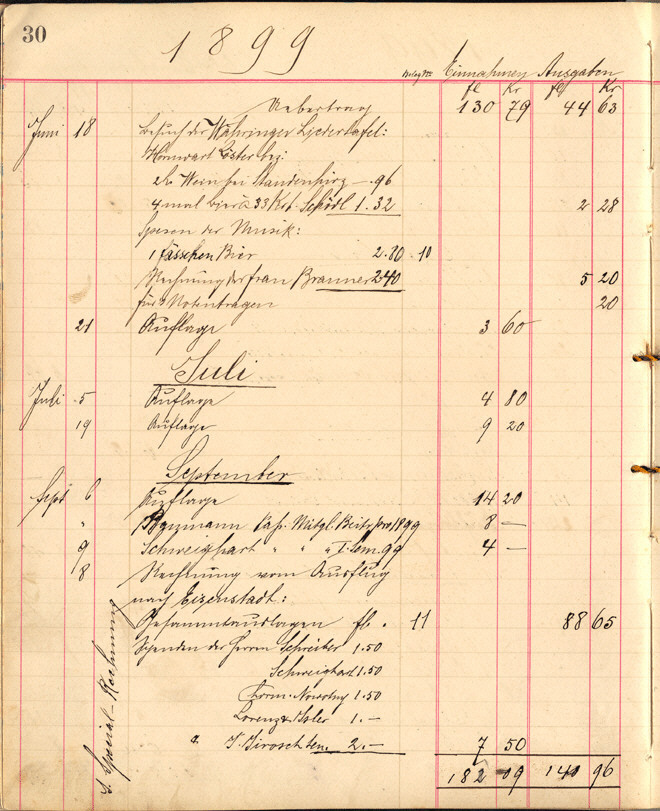 30
1899
Beleg No Einnahmen Ausgaben
fl Kr fl Kr
Uebertrag 130 79 44 63
Juni 18 Besuch der Währinger Liedertafel:
2 Wein bei 96
4 mal Bier à 33 Kr. 1.32 2 28
Spesen der Musik:
1 fässchen Bier 2.80 10
Rechnung der frau Branner 2.40 5 20
für Notentragen 20
21 Auflage 3 60
Juli
Juli 5 Auflage 4 80
19 Auflage 9 20
September
Sept 6 Auflage 14 20
" Mitgl. Beitr. pro 1899 8 —
9 Schweighart " " " I. Sem. 99 4 —
8 Rechnung vom Ausflug
nach Eizenstadt:
Gesammtauslagen fl. 11 88 65
Spenden der Herrn Schreiber 1.50
Schweighart 1.50
Nowotny 1.50
Lorenz 1.—
2.— 7 50
182 09 140 96
S. Special-Rechnung